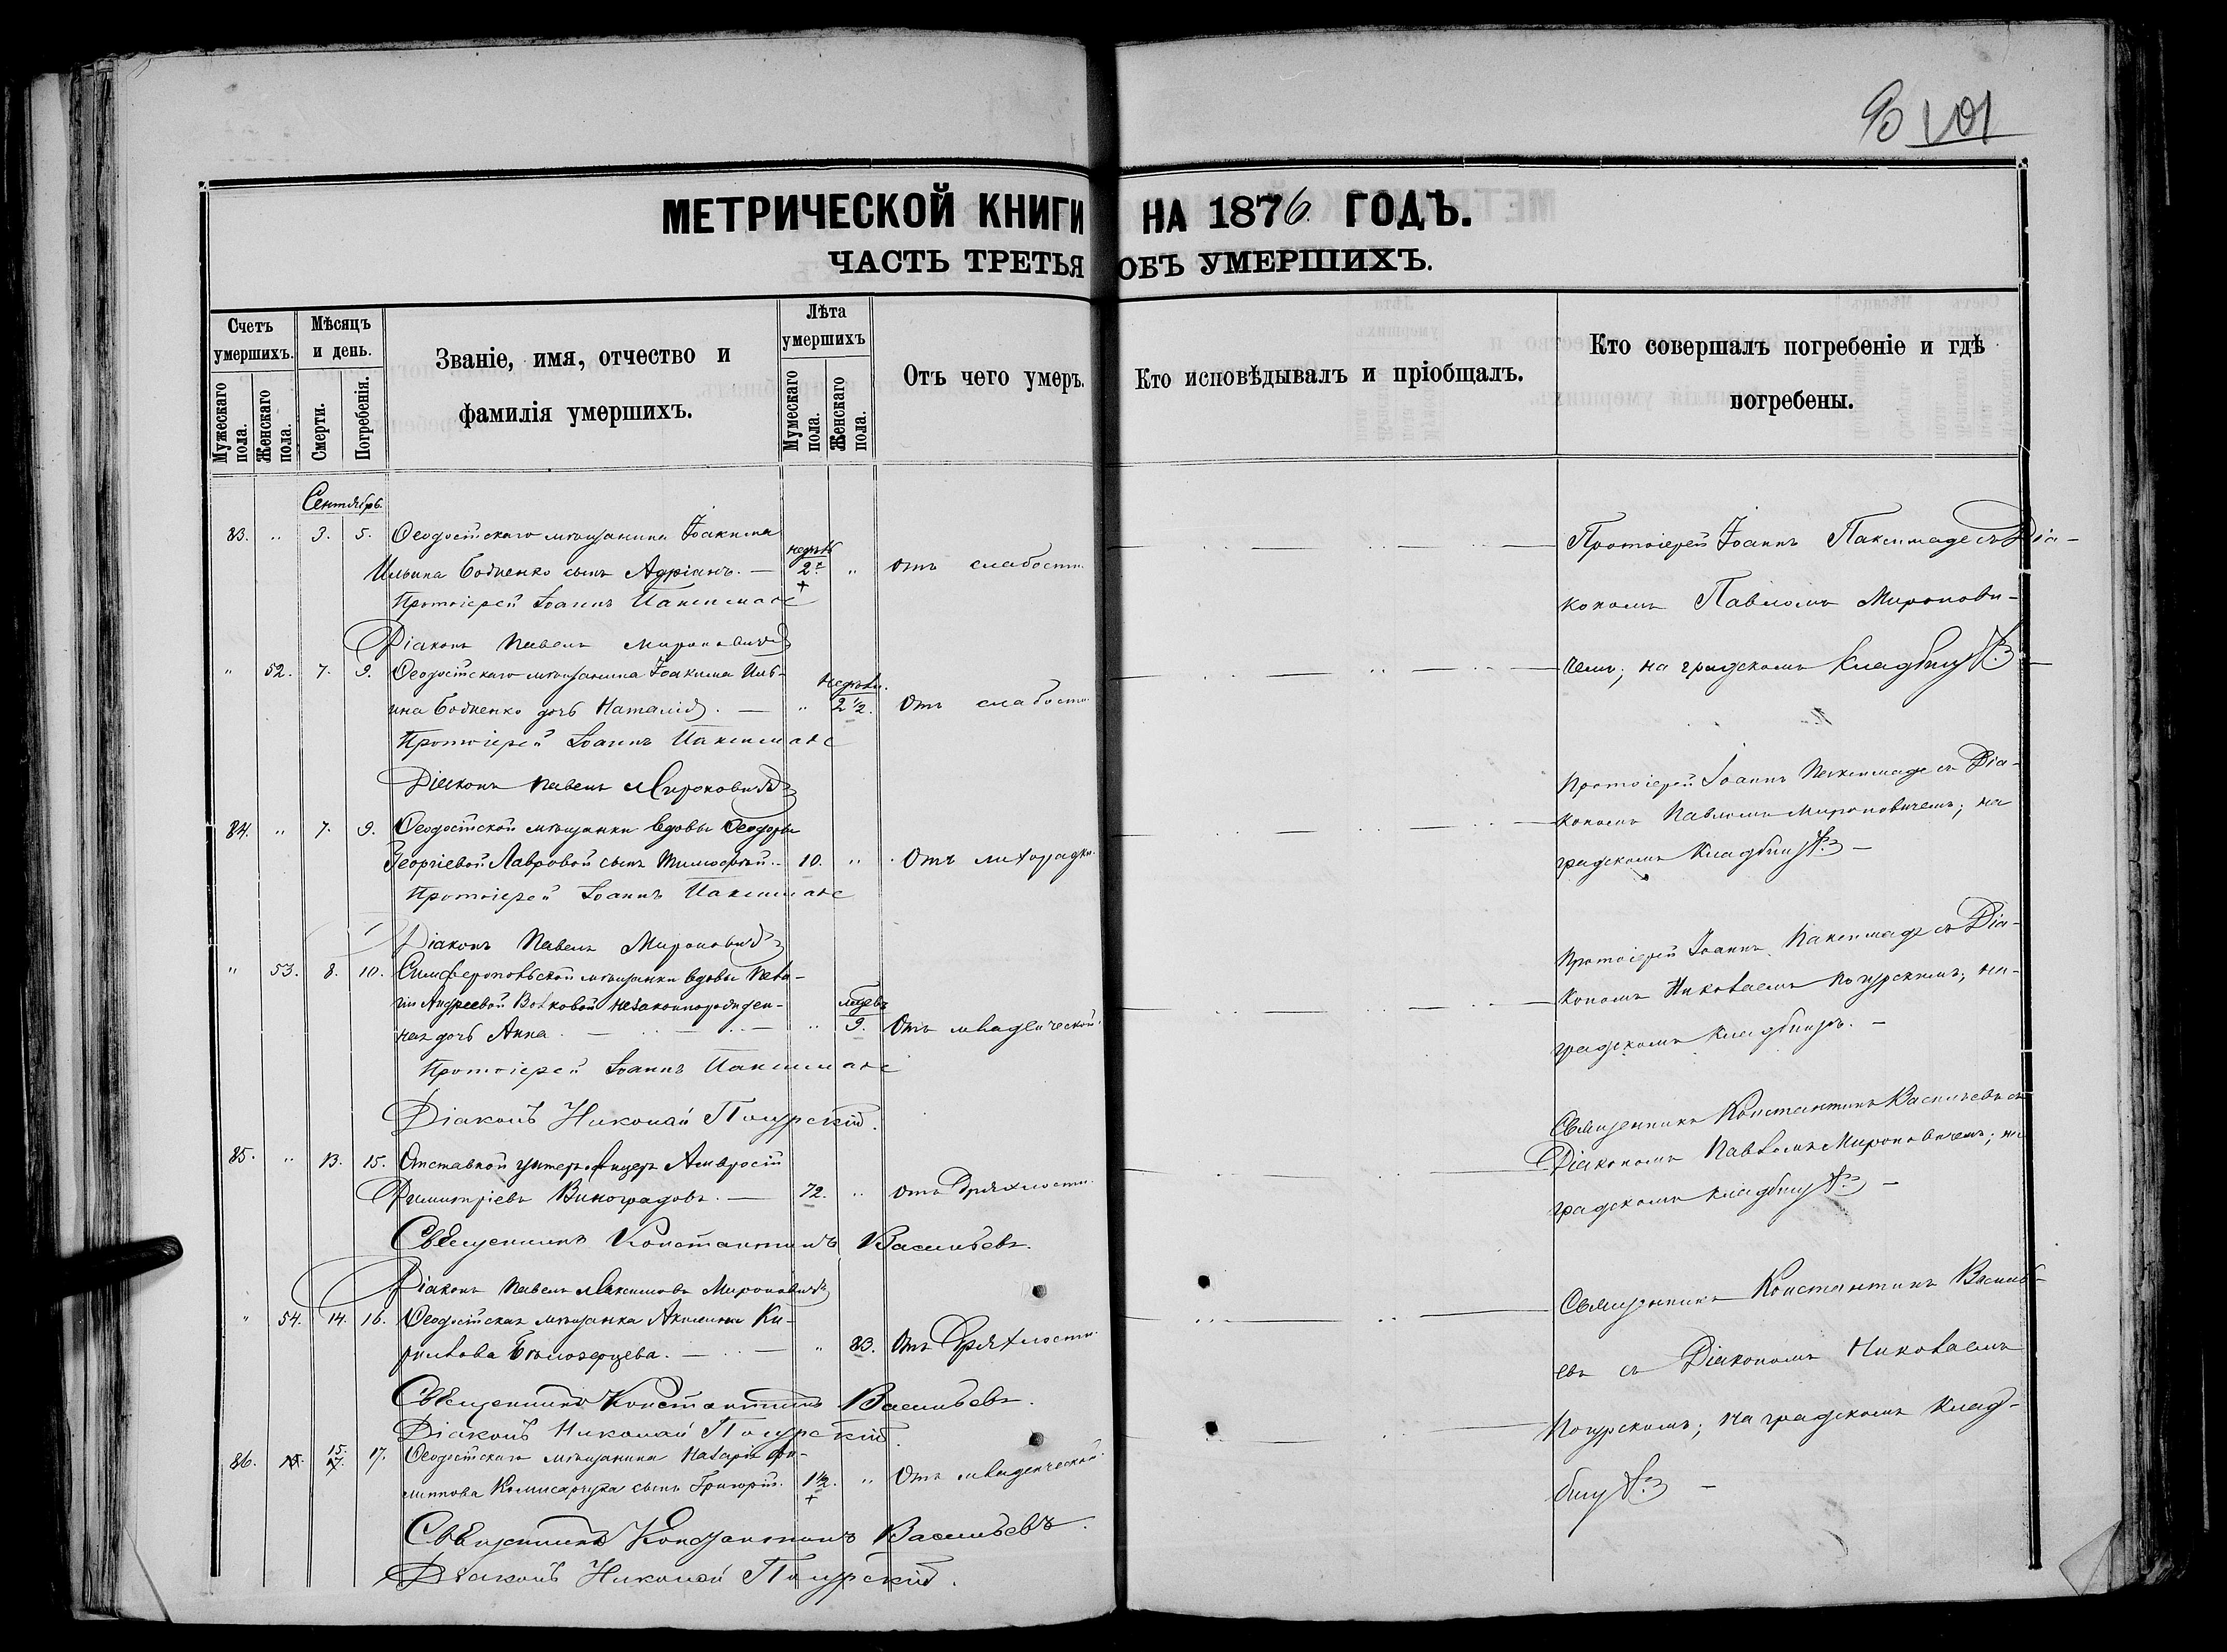 90 101
МЕТРИЧЕСКОЙ КНИГИ НА 1876 ГОДЪ.
ЧАСТЬ ТРЕТЬЯ ОБЪ УМЕРШИХЪ.
Счетъ умершихъ.
Мужескаго пола.
Женскаго пола.
Мѣсяцъ и день.
Смерти.
Погребенія.
Званіе, имя, отчество и
фамилія умершихъ.
Лѣта умершихъ
Мумескаго пола.
Женскаго пола.
Отъ чего умеръ.
Кто исповѣдывалъ и пріобщалъ.
Кто совершалъ погребеніе и гдѣ
погребены.
Сентябрь.
83. " 3. 5. Ѳеодосійскаго мѣщанина Іоакима
Ильина Бодненко сынъ Адріанъ. — недѣль 2. " отъ слабости.
Протоіерей Іоаннъ Паксимаде
Діаконъ Павелъ Мироновичъ
Протоіерей Іоаннъ Паксимаде съ Діа-
кономъ Павломъ Миронови-
чемъ; на градскомъ кладбищѣ. —
" 52. 7. 9. Ѳеодосійскаго мѣщанина Іоакима Иль-
ина Бодненко дочь Наталія. — " недѣли. 2 1/2. Отъ слабости
Протоіерей Іоаннъ Паксимаде
Діаконъ Павелъ Мироновичъ
84. " 7. 9. Ѳеодосійской мѣщанки вдовы Ѳеодоры
Георгіевой Лавровой сынъ Тимофей. — 10. " Отъ лихорадки.
Протоіерей Іоаннъ Паксимаде
Діаконъ Павелъ Мироновичъ
Протоіерей Іоаннъ Паксимаде съ Діа-
кономъ Павломъ Мироновичемъ; на
градскомъ кладбищѣ. —
" 53. 8. 10. Симферопольской мѣщанки вдовы Пела-
гіи Андреевой Волковой незаконнорожден-
ная дочь Анна. — " мѣсяц. 9. Отъ младенческой.
Протоіерей Іоаннъ Паксимаде
Діаконъ Николай Погурскій.
Протоіерей Іоаннъ Паксимаде съ Діа-
кономъ Николаемъ Погурскимъ; на-
градскомъ кладбищѣ. —
85. " 13. 15. Отставной унтеръ-офицеръ Амвросій
Димитріевъ Виноградовъ. — 72. " отъ дряхлости.
Священникъ Константинъ Васильевъ.
Діаконъ Павелъ Максимовъ Мироновичъ
Священникъ Константинъ Васильевъ съ
Діакономъ Павломъ Мироновичемъ; на
градскомъ кладбищѣ. —
" 54. 14. 16. Ѳеодосійская мѣщанка Акилина Ки-
рилова Бѣлозерцева. — " 83. Отъ дряхлости.
Священникъ Константинъ Васильевъ.
Діаконъ Николай Погурскій.
Священникъ Константинъ Василь-
евъ съ Діакономъ Николаемъ
Погурскимъ; на градскомъ клад-
бищѣ. —
86. 15. 17. Ѳеодосійскаго мѣщанина Назарія Фи-
липпова Комисарчука сынъ Григорій. 1 1/2. " Отъ младенческой.
Священникъ Константинъ Васильевъ.
Діаконъ Николай Погурскій.